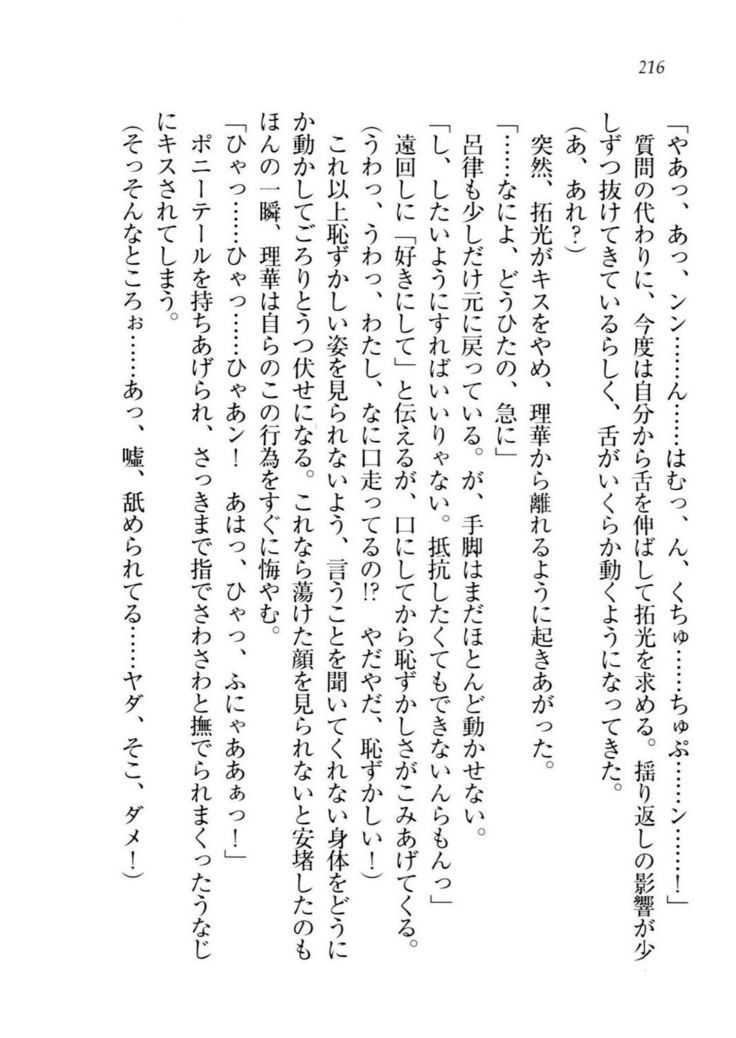 216
「やあっ、あっ、ンン……ん……はむっ、ん、くちゅ……ちゅぷ……ン……！」
質問の代わりに、今度は自分から舌を伸ばして拓光を求める。揺り返しの影響が少
しずつ抜けてきているらしく、舌がいくらか動くようになってきた。
(あ、あれ？)
突然、拓光がキスをやめ、理華から離れるように起きあがった。
「……なによ、どうひたの、急に」
呂律も少しだけ元に戻っている。が、手脚はまだほとんど動かせない。
「し、したいようにすればいいりゃない。抵抗したくてもできないんらもんっ」
遠回しに「好きにして」と伝えるが、口にしてから恥ずかしさがこみあげてくる。
(うわっ、うわっ、わたし、なに口走ってるの!?　やだやだ、恥ずかしい！)
これ以上恥ずかしい姿を見られないよう、言うことを聞いてくれない身体をどうに
か動かしてごろりとうつ伏せになる。これなら蕩けた顔を見られないと安堵したのも
ほんの一瞬、理華は自らのこの行為をすぐに悔やむ。
「ひゃっ……ひゃっ……ひゃあン！　あはっ、ひゃっ、ふにゃああぁっ！」
ポニーテールを持ちあげられ、さっきまで指でさわさわと撫でられまくったうなじ
にキスされてしまう。
(そっそんなところぉ……あっ、嘘、舐められてる……ヤダ、そこ、ダメ！)